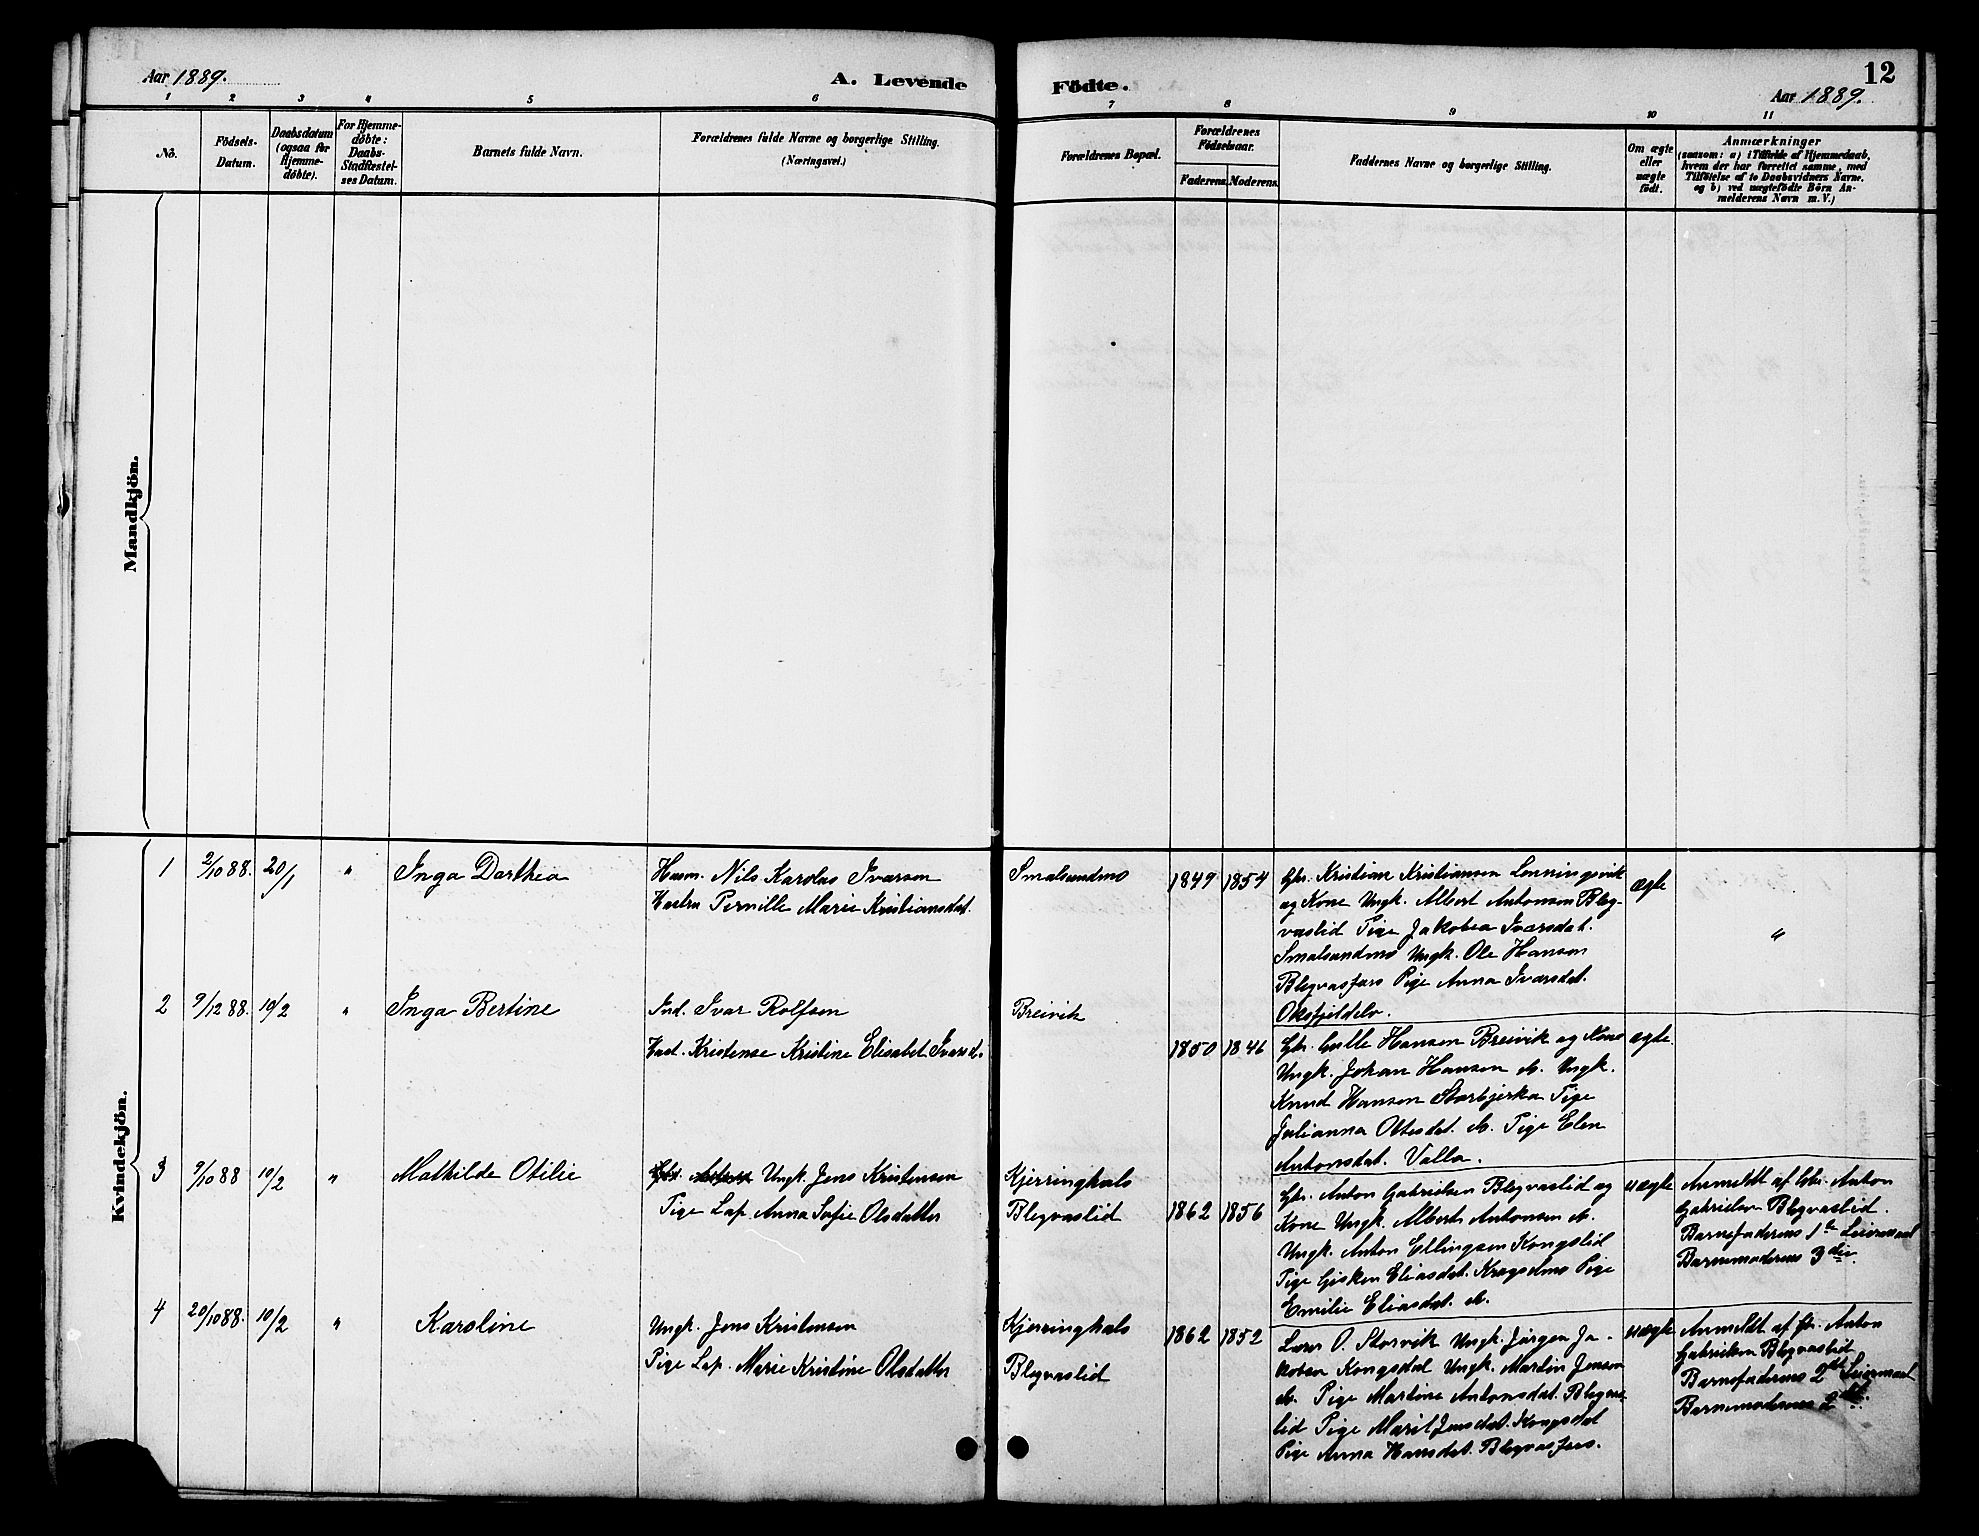 Aar 1889.
A. Levende
Födte.
12
Aar 1889.
1 2 3 4 5 6 7 8 9 10 11
No.
Födsels-
Datum.
Daabsdatum
(ogsaa for
Hjemme-
døbte).
For Hjemme-
døbte:
Daabs-
Stadfæstel-
ses Datum.
Barnets fulde Navn.
Forældrenes fulde Navne og borgerlige Stilling.
(Næringsvei.)
Forældrenes Bopæl.
Forældrenes
Födselsaar.
Faderens. Moderens.
Faddernes Navne og borgerlige Stilling.
Om ægte
eller
uægte
födt.
Anmærkninger
(saasom: a) i Tilfælde af Hjemmedaab,
hvem der har forrettet samme, med
Tilföielse af to Daabsvidners Navne.
og b) ved uægtefödte Börn An-
melderens Navn m. V.)
Mandkjön.
Kvindekjön.
1 2/10 88. 20/1 " Inga Dorthea
Husm. Nils Karolus Ivarson
Hustru Pernille Marie Kristiansdat.
Smalsundmo
1849 1854
Gbr. Kristian Kristiansen Lonningsvik
og Kone Ungk. Albert Antonsen Bleg-
vaslid Pige Jakobea Ivarsdat.
Smalsundmo Ungk. Ole Hansen
Blegvasfors Pige Anna Ivarsdat.
Oksfjeldelv.
ægte
"
2 9/12 88. 10/2 " Inga Bertine
Ind. Ivar Rolfsen
Hust. Kristense Kristine Elisabet Ivarsd.
Breivik
1850 1846
Gbr. Hansen Breivik og Kone
Ungk. Johan Hansen do. Ungk.
Knud Hansen Storbjerka Pige
Julianna Ottesdat. do. Pige Elen
Antonsdat. Valla.
ægte.
3 9/10 88 10/2 " Mathilde Otilie
Ungk. Jens Kristensen
Pige Lap. Anna Sofie Olsdatter
Kjerringhals
Blegvaslid
1862 1856
Gbr. Anton Gabrielsen Blegvaslid og
Kone Ungk. Albert Antonsen do.
Ungk. Anton Ellingsen Kongslid
Pige Gisken Eliasdat. Kragsdmo Pige
Emilie Eliasdat. do.
uægte
Anmeldt af Gbr. Anton
Gabrielsen Blegvaslid.
Barnefaderens 1te Leiermaal
Barnemoderens 3die.
4 20/10 88. 10/2 " Karoline
Ungk. Jens Kristensen
Pige Lap. Marie Kristine Olsdatter
Kjerringhals
Blegvaslid
1862 1852
O. Storvik Ungk. Jörgen Ja-
kobsen Kongsdal Ungk. Martin Jensen
do. Pige Martine Antonsdat. Blegvas-
lid Pige Marit Jensdat. Kongsdal
Pige Anna Hansdat. Blegvasfors.
uægte
Anmeldt af Gbr. Anton
Gabrielsen Blegvaslid
Barnefaderens 2det Leiermaal
Barnemoderens 2det.